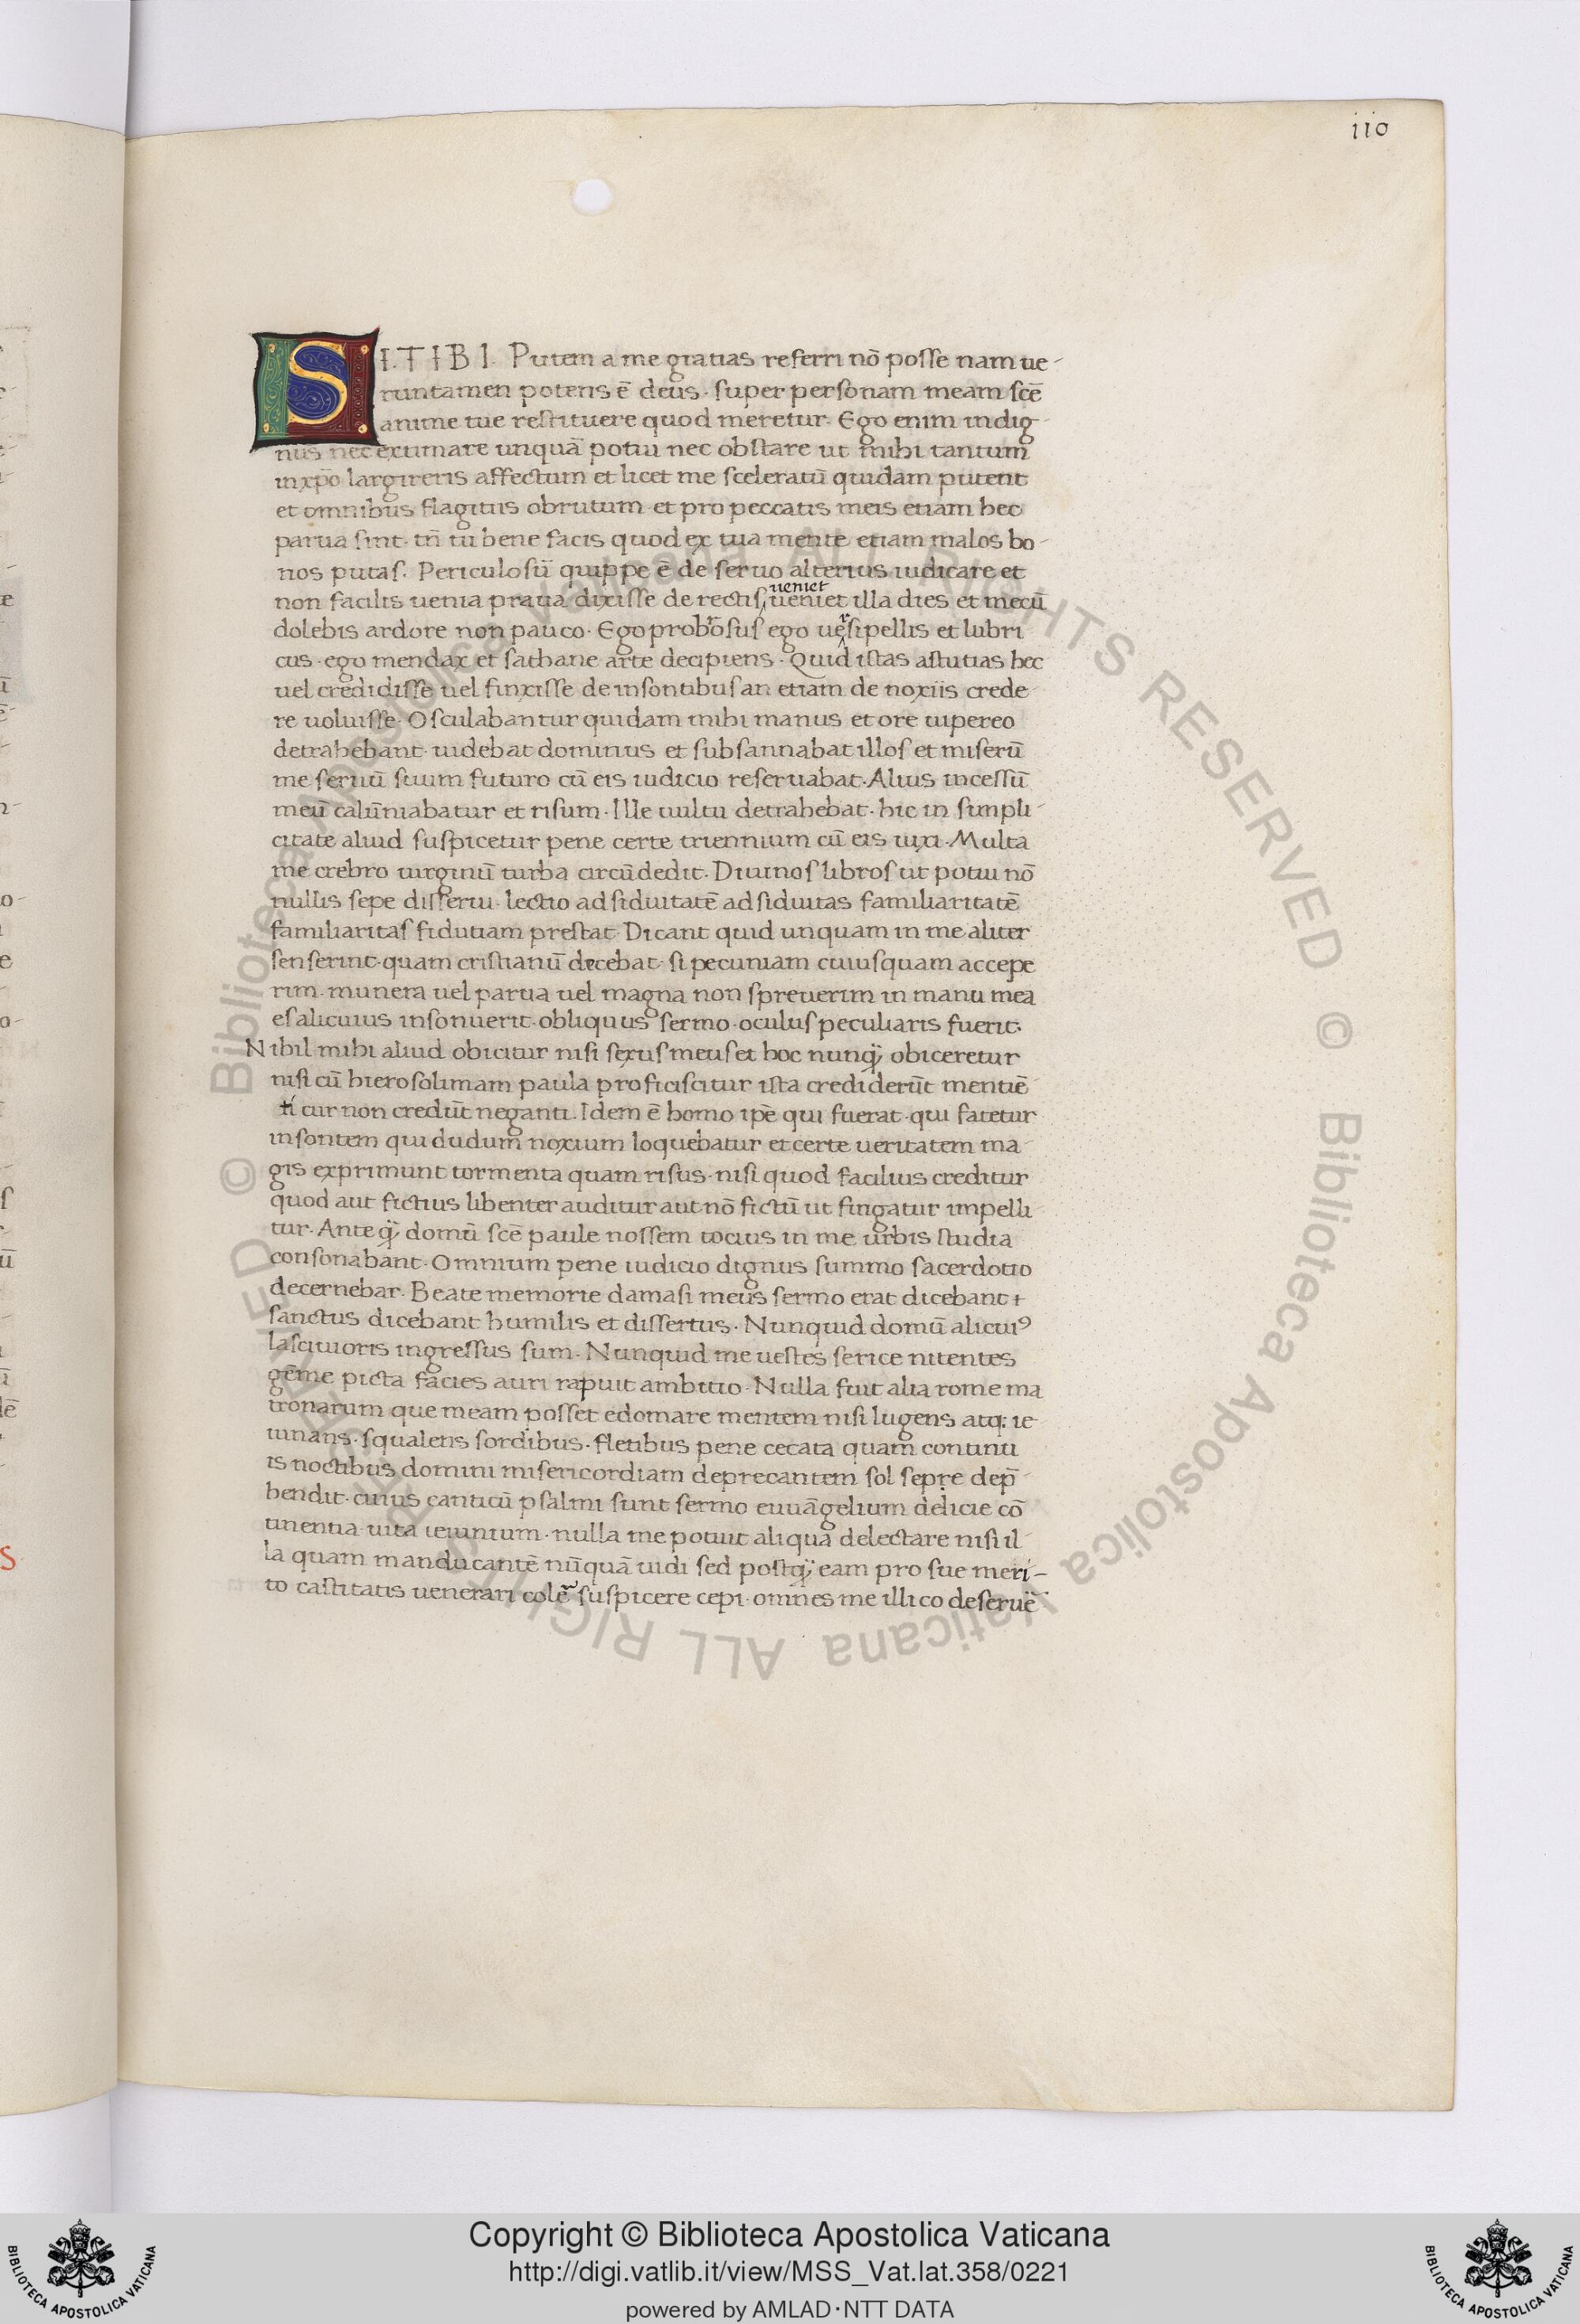 110
SI. TIBI. Putem a me gratias referri nō posse nam ue-
runtamen potens ē deus. super personam meam scē
anime tue restituere quod meretur. Ego enim indig-
nus nec extimare unquā potui nec obstare ut mihi tantum
in xp̄o largireris affectum et licet me sceleratū quidam putent
et omnibus flagitiis obrutum et pro peccatis meis etiam hec
parua sint. tn̄ tu bene facis quod ex tua mente etiam malos bo-
nos putas. Periculosū quippe ē de seruo alterius iudicare et
ueniet
non facilis uenia praua dixisse de rectis, ueniet illa dies et mecū
dolebis ardore non pauco. Ego probrosus ego uersipellis et lubri
cus. ego mendax et sathane arte decipiens. Quid istas astutias hec
uel credidisse uel finxisse de insontibus an etiam de noxiis crede-
re uoluisse. Osculabantur quidam mihi manus et ore uipereo
detrahebant. uidebat dominus et subsannabat illos et miserū
me seruū suum futuro cū eis iudicio reseruabat. Alius incessū
meū calūniabatur et risum. Ille uultu detrahebat. hic in simpli-
citate aliud suspicetur pene certe triennium cū eis uixi. Multa
me crebro uirginū turba circūdedit. Diuinos libros ut potui nō
nullis sepe disserui. lectio adsiduitatē adsiduitas familiaritatē
familiaritas fidutiam prestat. Dicant quid unquam in me aliter
senserint. quam cristianū decebat. si pecuniam cuiusquam accepe
rim. munera uel parua uel magna non spreuerim in manu mea
es alicuius insonuerit. obliquus sermo. oculus peculiaris fuerit.
Nihil mihi aliud obicitur nisi sexus meus et hoc nunq̄ obiceretur
nisi cū hierosolimam paula proficiscitur ista crediderūt mentiē-
ti cur non credūt neganti. Idem ē homo ipē qui fuerat. qui fatetur
insontem qui dudum noxium loquebatur et certe ueritatem ma-
gis exprimunt tormenta quam risus. nisi quod facilius creditur
quod aut fictius libenter auditur aut nō fictū ut fingatur impelli-
tur. Anteq̄ domū scē paule nossem tocius in me urbis studia
consonabant. Omnium pene iudicio dignus summo sacerdotio
decernebar. Beate memorie damasi meus sermo erat dicebant
sanctus dicebant humilis et dissertus. Nunquid domū alicui⁹
lasciuioris ingressus sum. Nunquid me uestes serice nitentes
gēme picta facies auri rapuit ambitio. Nulla fuit alia rome ma
tronarum que meam posset edomare mentem nisi lugens atq: ie-
iunans. squalens sordibus. fletibus pene cecata quam continu
is noctibus domini misericordiam deprecantem sol sepre dep̄-
hendit. cuius canticū psalmi sunt sermo euuāgelium delicie cō
tinentia uita ieiunium. nulla me potuit aliqua delectare nisi il-
la quam manducantē nūquā uidi sed postq̄ eam pro sue meri-
to castitatis uenerari colē suspicere cepi. omnes me illico deseruē
Copyright © Biblioteca Apostolica Vaticana
http://digi.vatlib.it/view/MSS_Vat.lat.358/0221
powered by AMLAD·NTT DATA